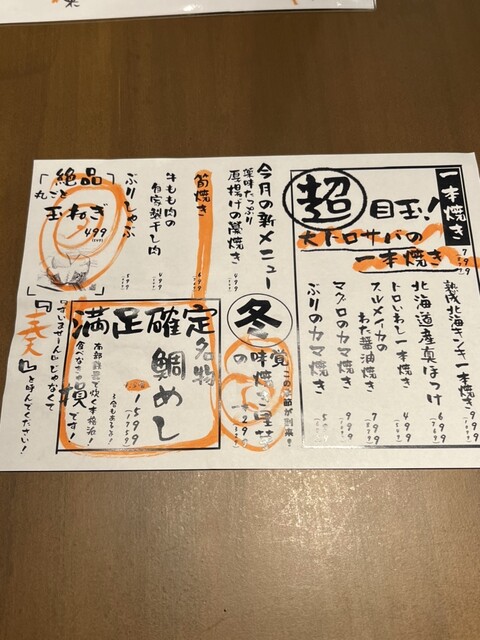 一本焼き
超目玉!
大トロサバの
一本焼き
799
熟成北海キンキ一本焼き
北海道産真ほっけ
699
トロいわし一本焼き
499
スルメイカの
わた醤油焼き
799
マグロのカマ焼き
999
ぶりのカマ焼き
今月の新メニュー
薬味たっぷり
厚揚げの藁焼き
499
筍焼き
699
牛もも肉の
自家製干し肉
ぶりしゃぶ
絶品
丸ごと
玉ねぎ
499
冬の味覚
この季節が到来!!
焼き里芋
299
満足確定
名物
鯛めし
1599
(1759)
南部鉄器で炊く本格派!
食べなきゃ損です!
『すいませーん』じゃなくて
『大将』と呼んでください!